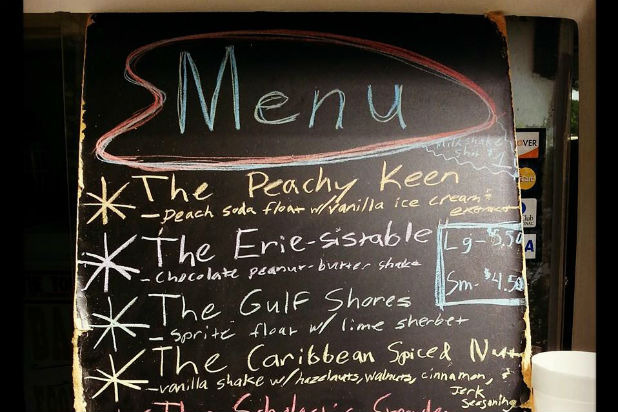 Menu
Milkshake
The Peachy Keen
- peach soda float w/vanilla ice cream +
extract
The Erie-sistable
- chocolate peanut-butter shake
Lg - $5.50
Sm - $4.50
The Gulf Shores
- sprite float w/ lime sherbet
The Caribbean Spiced Nut
- vanilla shake w/ hazelnuts, walnuts, cinnamon, +
Jerk
seasoning
The
OVER